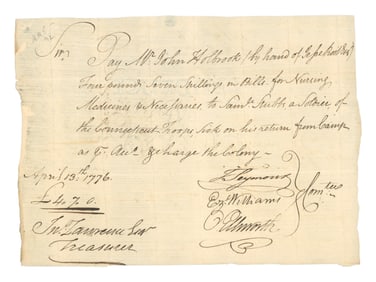 Sir,
Pay Mr John Holbrook (by hand of
Four pounds Seven Shillings in Bills for Nursing
Medicines & Necessaries, to Saml Stubb, a Soldier of
the Connecticut Troops, Sick on his return from Camp
as pr Acct & charge the Colony —
April 13th 1776.
£4.7.0.
T Seymour
Ez: Williams
O Ellsworth
Comtee
Jno Lawrence Esqr
Treasurer